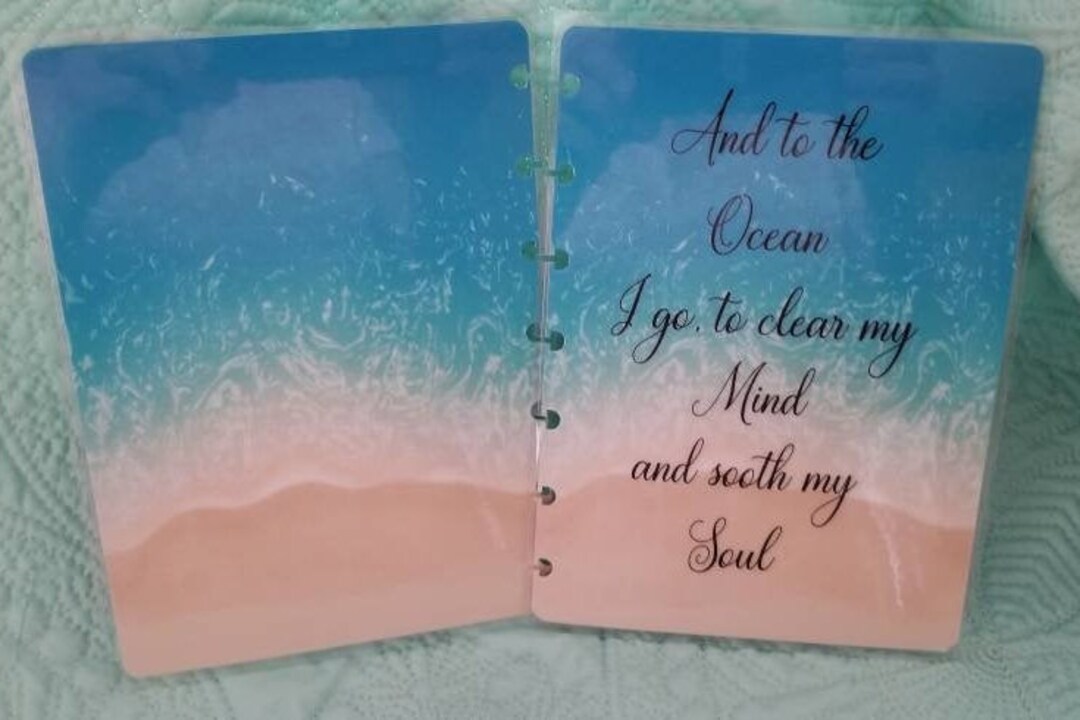 And to the
Ocean
I go. to clear my
Mind
and sooth my
Soul